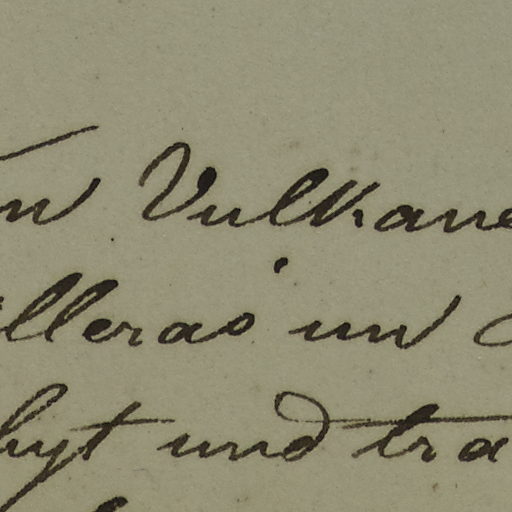 Vulkane
lleras un
hyt und tra